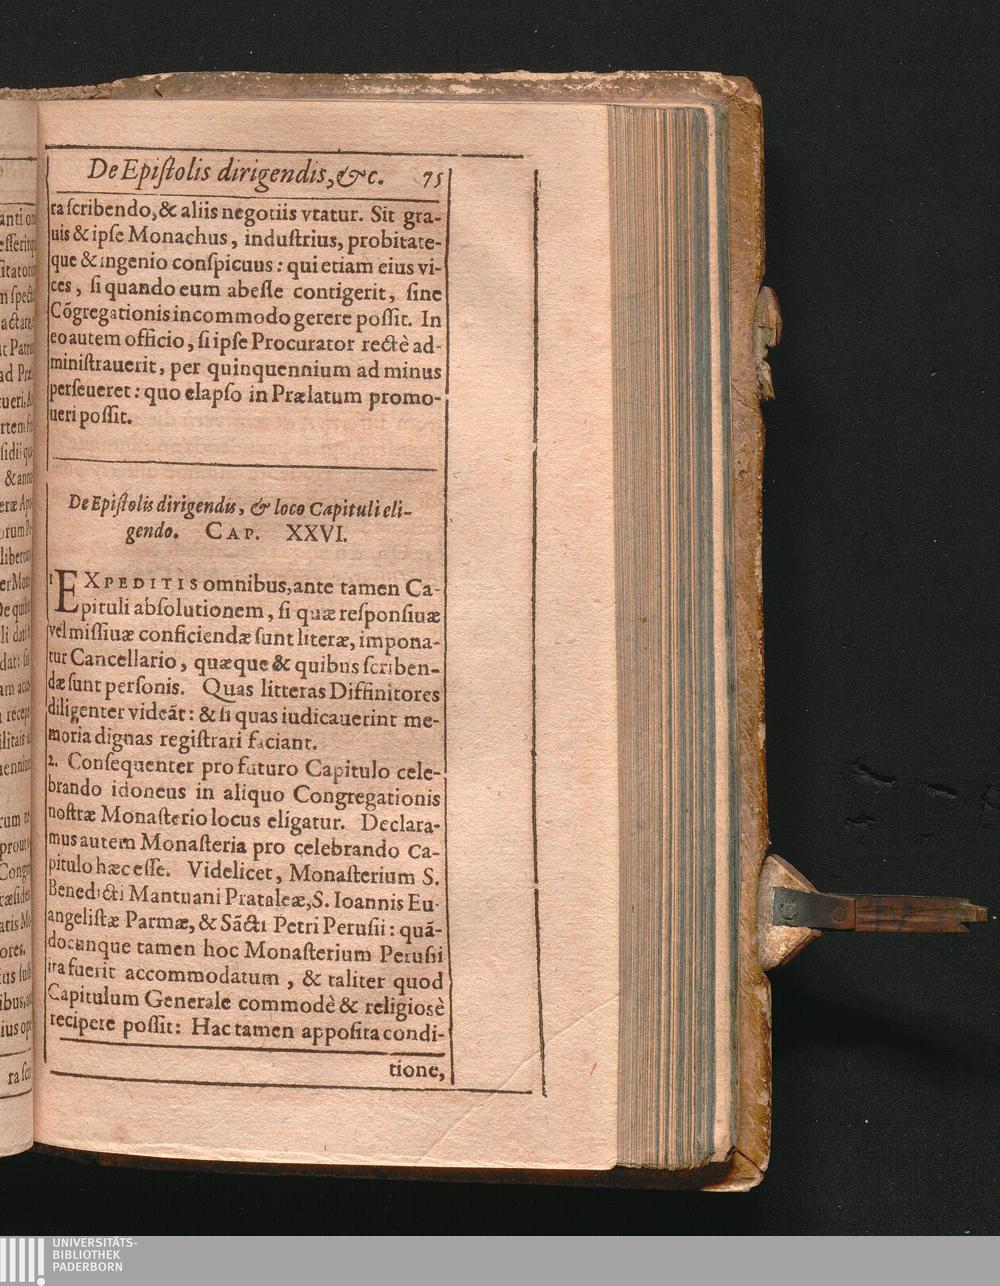 De Epiſtolis dirigendis, &c. 75
ra ſcribendo, & aliis negotiis vtatur. Sit gra-
uis & ipſe Monachus, induſtrius, probitate-
que & ingenio conſpicuus: qui etiam eius vi-
ces, ſi quando eum abeſſe contigerit, ſine
Cõgregationis incommodo gerere poſſit. In
eo autem officio, ſi ipſe Procurator rectè ad-
miniſtrauerit, per quinquennium ad minus
perſeueret: quo elapſo in Prælatum promo-
ueri poſſit.
De Epiſtolis dirigendis, & loco Capituli eli-
gendo. CAP. XXVI.
1 EXPEDITIS omnibus, ante tamen Ca-
pituli abſolutionem, ſi quæ reſponſiuæ
vel miſſiuæ conficiendæ ſunt literæ, impona-
tur Cancellario, quæque & quibus ſcriben-
dæ ſunt perſonis. Quas litteras Diffinitores
diligenter videãt: & ſi quas iudicauerint me-
moria dignas regiſtrari faciant.
2. Conſequenter pro futuro Capitulo cele-
brando idoneus in aliquo Congregationis
noſtræ Monaſterio locus eligatur. Declara-
mus autem Monaſteria pro celebrando Ca-
pitulo hæc eſſe. Videlicet, Monaſterium S.
Benedicti Mantuani Prataleæ, S. Ioannis Eu-
angeliſtæ Parmæ, & Sãcti Petri Peruſii: quã-
docunque tamen hoc Monaſterium Peruſii
ita fuerit accommodatum, & taliter quod
Capitulum Generale commodè & religioſè
recipere poſſit: Hac tamen appoſita condi-
tione,
UNIVERSITÄTS-
BIBLIOTHEK
PADERBORN